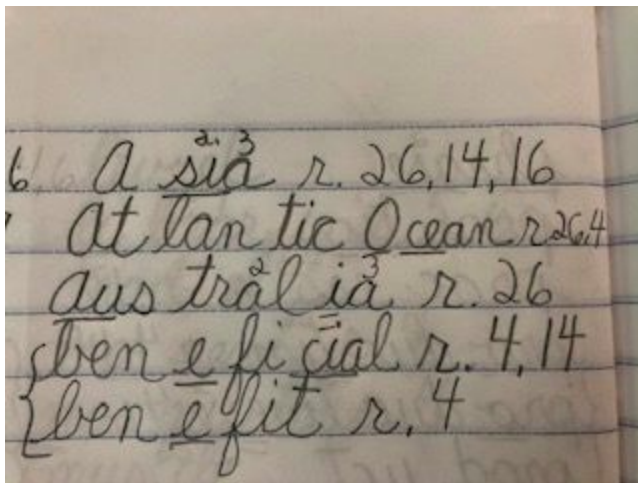 6. A sia r. 26, 14, 16
At lan tic Ocean r 26, 4
aus tral ia r. 26
ben e fi cial r. 4, 14
ben e fit r. 4